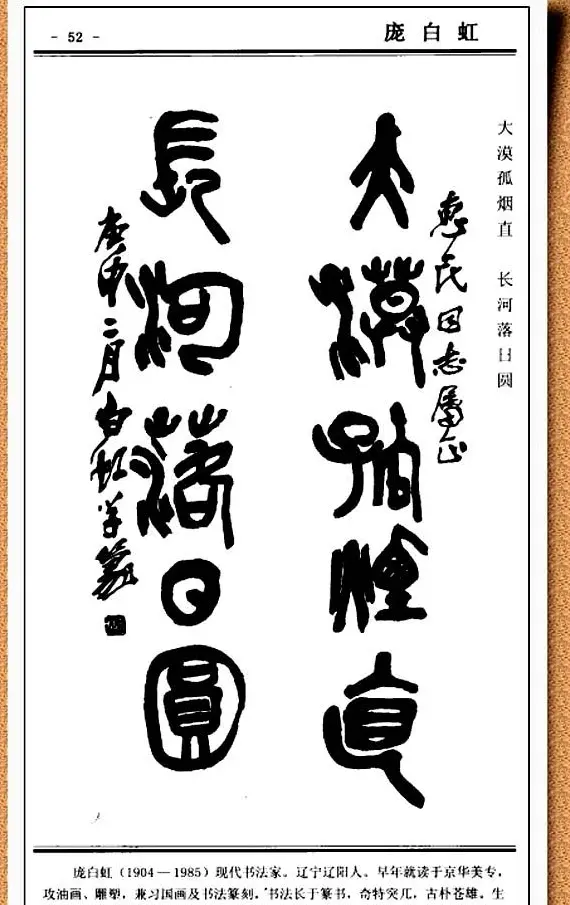 - 52 -
庞白虹
大漠孤烟直 长河落日圆
惠民同志属正
大漠孤煙直
長河落日圓
庚申二月白虹学篆
庞白虹（1904—1985）现代书法家。辽宁辽阳人。早年就读于京华美专，
攻油画、雕塑，兼习国画及书法篆刻，书法长于篆书，奇特突兀，古朴苍雄。生